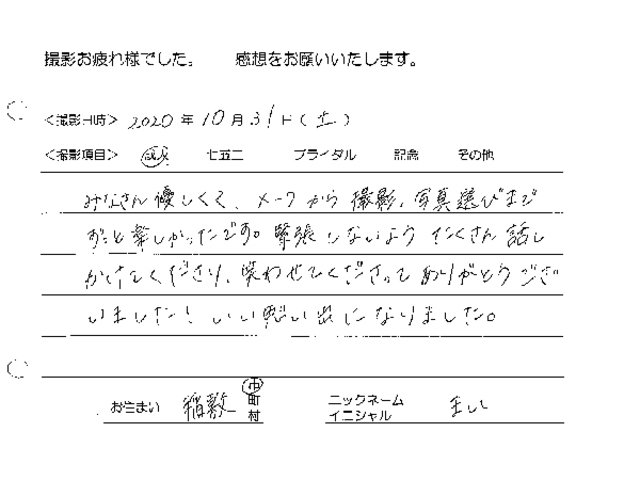 撮影お疲れ様でした。 感想をお願いいたします。
<撮影日時> 2020 年 10 月 31 日 ( 土 )
<撮影項目> 成人 七五三 ブライダル 記念 その他
みなさん優しくて、メークから撮影、写真選びまで
ずっと楽しかったです。緊張しないようたくさん話し
かけてくださり、笑わせてくださってありがとうござ
いました! いい思い出になりました。
お住まい 稲敷 市 町 村 ニックネーム イニシャル まい